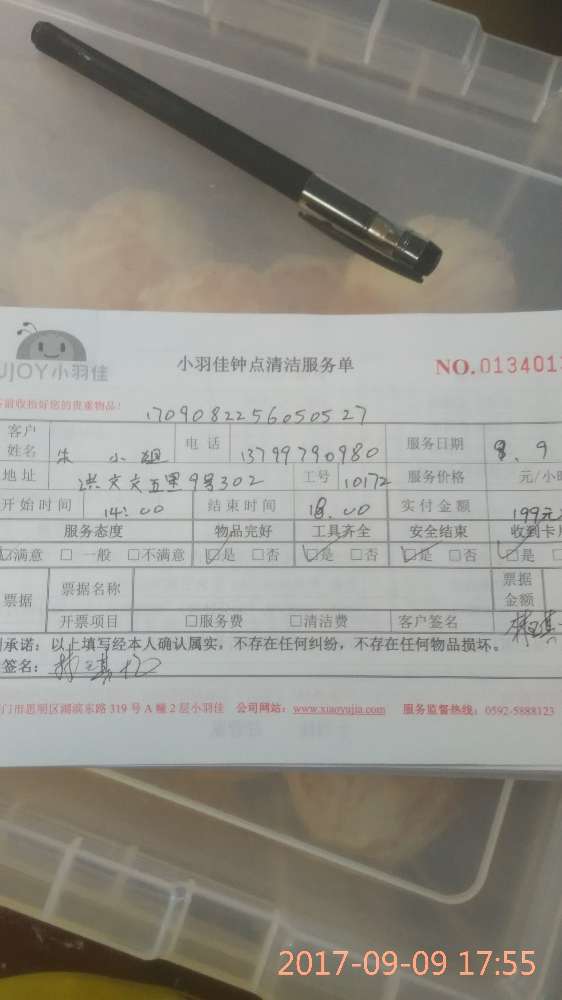 UJOY小羽佳
小羽佳钟点清洁服务单
NO.013401
前收拾好您的贵重物品!
1709082256050527
客户姓名 朱小姐 电话 13799790980 服务日期 9.9
地址 洪文文五里9号302 工号 10172 服务价格 元/小
开始时间 14:00 结束时间 18:00 实付金额 199元
服务态度 物品完好 工具齐全 安全结束 收到卡
满意 □一般 □不满意 □是 □否 □是 □否 □是 □否 □是 □
票据 票据名称 票据金额
开票项目 □服务费 □清洁费 客户签名
承诺:以上填写经本人确认属实,不存在任何纠纷,不存在任何物品损坏。
签名:
门市思明区湖滨东路 319 号 A 幢 2 层小羽佳 公司网站:www.xiaoyujia.com 服务监督热线:0592-5888123
2017-09-09 17:55